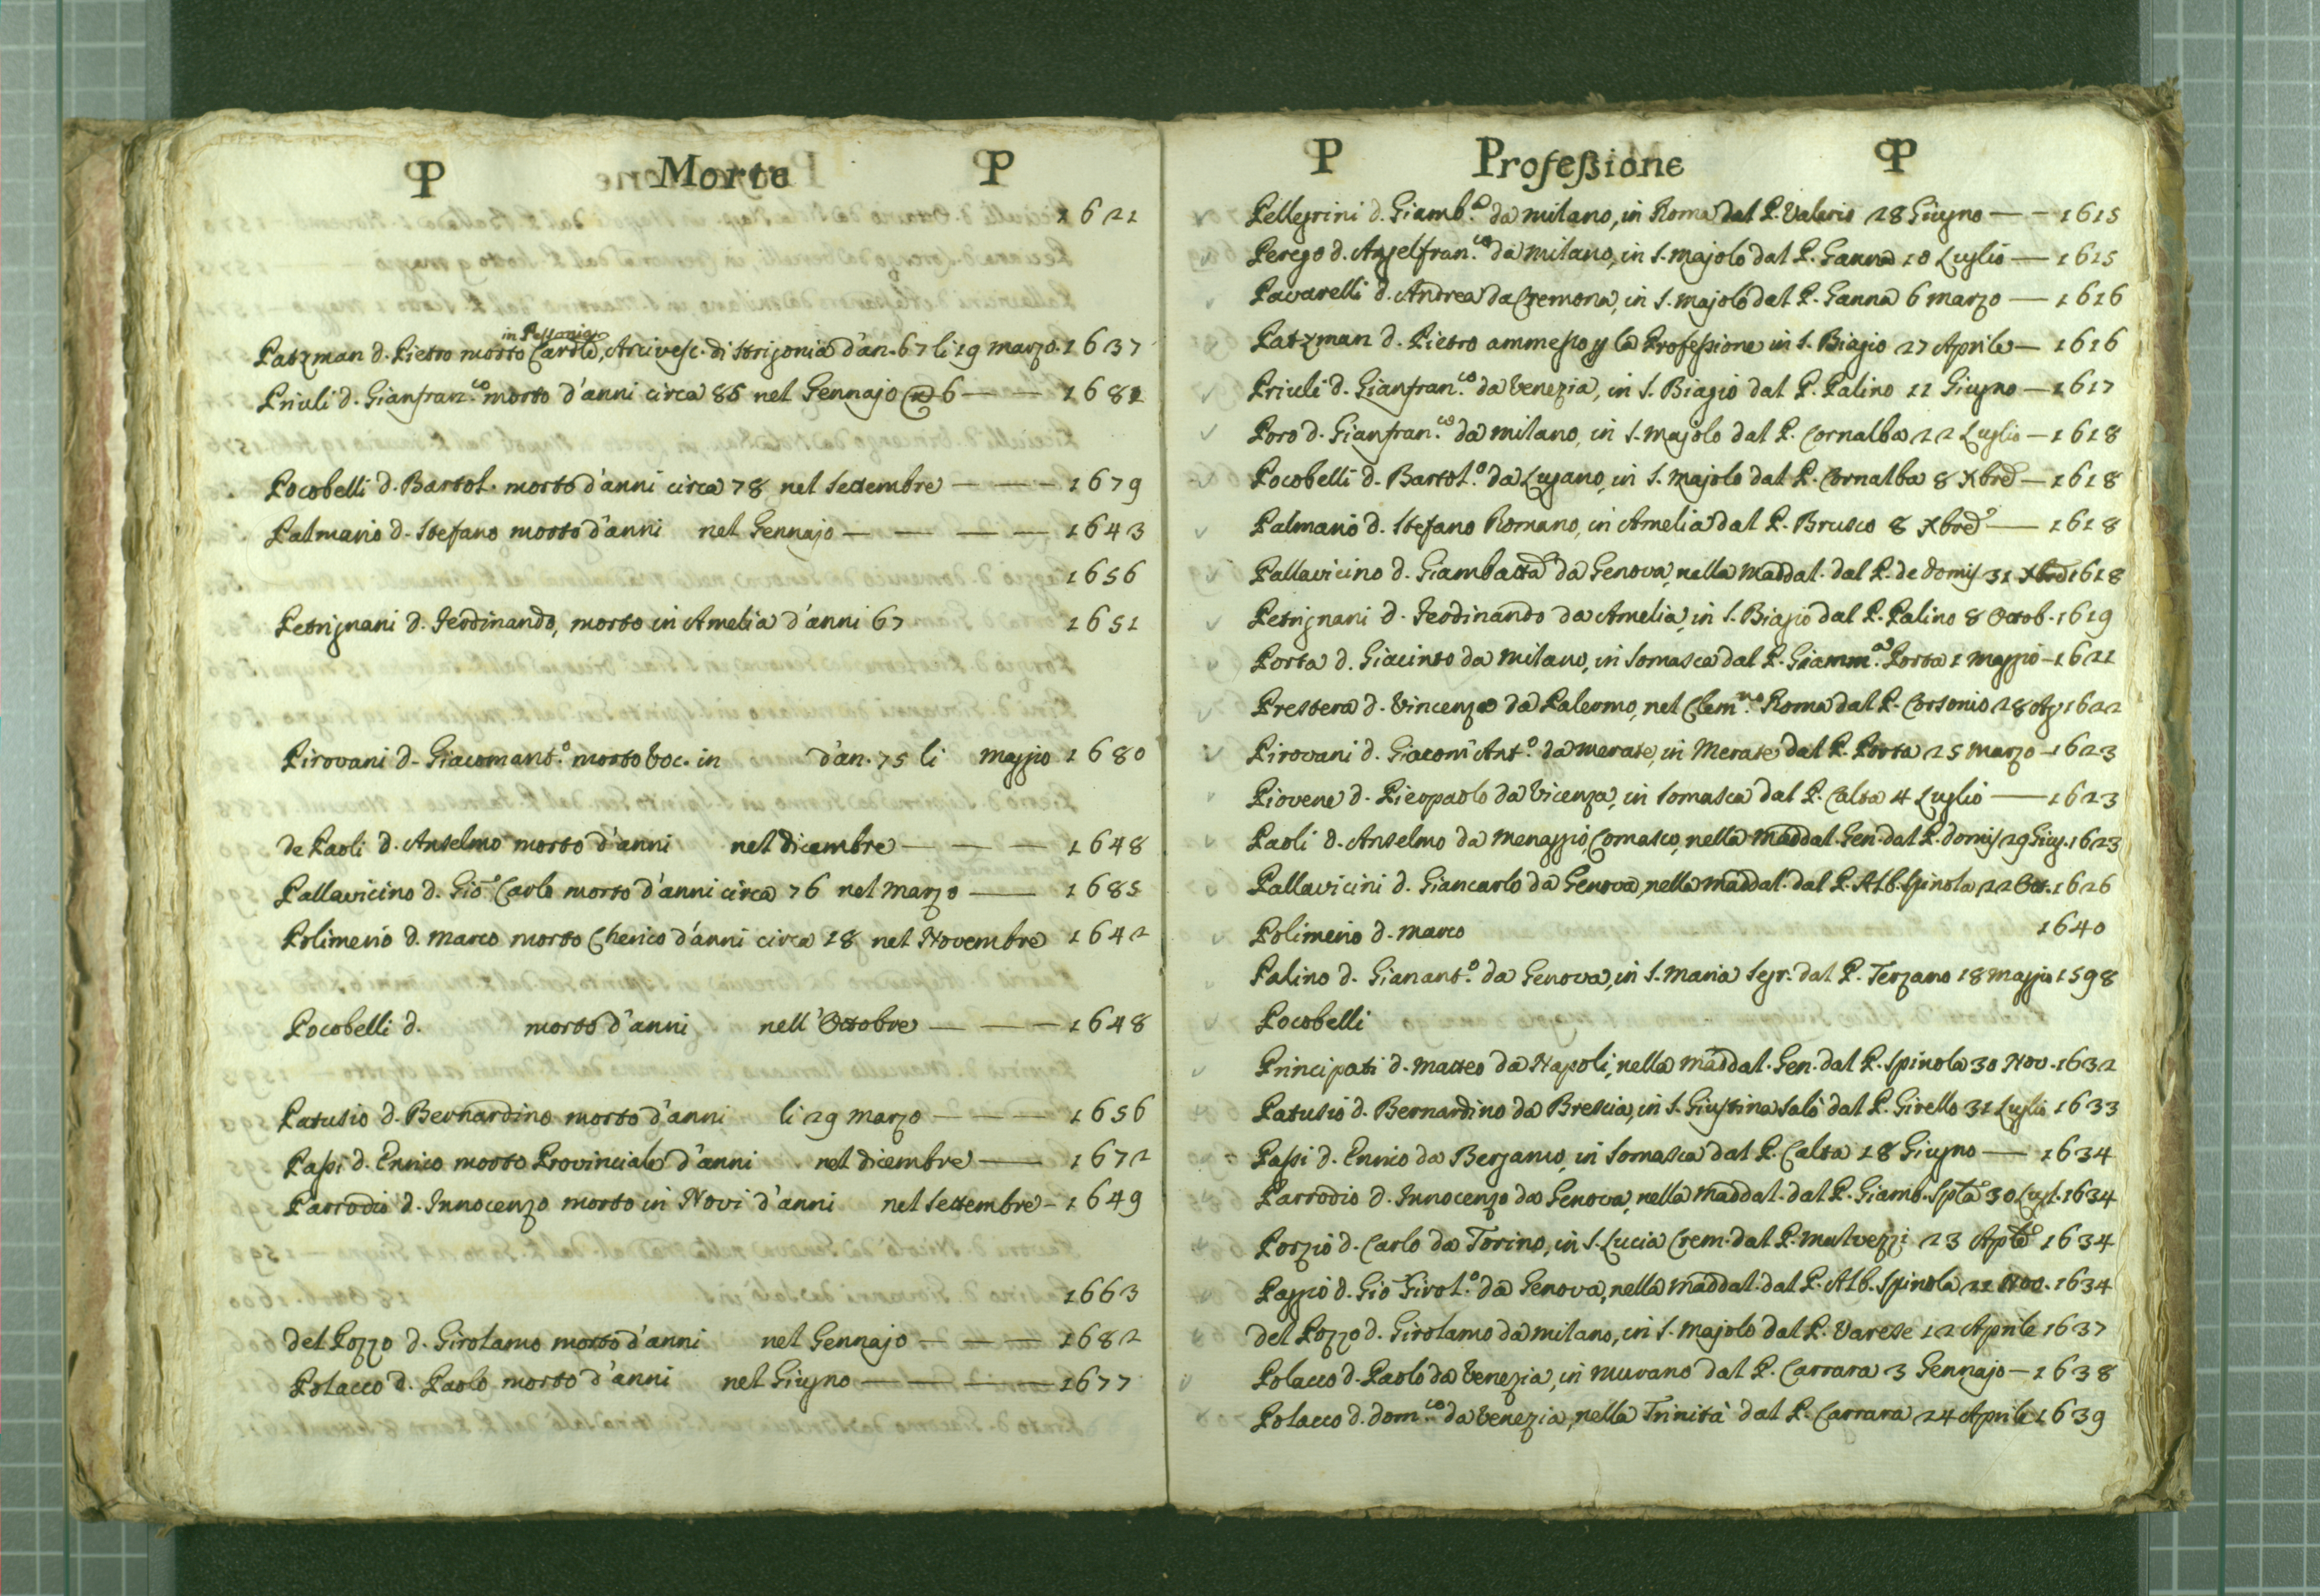 P Morte P
1621
in Possonia
Patzman d. Pietro morto Card.le, Arcivesc. di Strigonia d'an. 67 li 19 marzo. 1637
Priuli d. Gianfran.co morto d'anni circa 85 nel Gennajo 6 — — 1681
Pocobelli d. Bartol. morto d'anni circa 78 nel Settembre — — — 1679
Palmario d. Stefano morto d'anni nel Gennajo — — — — 1643
1656
Petrignani d. Ferdinando, morto in Amelia d'anni 67 1651
Pirovani d. Giacomant.o morto Voc. in d'an. 75 li maggio 1680
de Paoli d. Anselmo morto d'anni nel dicembre — — — 1648
Pallavicino d. Gio Carlo morto d'anni circa 76 nel marzo — 1685
Polimerio d. marco morto Cherico d'anni circa 18 nel Novembre 1642
Pocobelli d. morto d'anni nell'Ottobre — — — 1648
Patusio d. Bernardino morto d'anni li 29 marzo — — — 1656
Passi d. Ennio morto Provinciale d'anni nel dicembre — 1672
Parrodio d. Innocenzo morto in Novi d'anni nel Settembre - 1649
1663
del Pozzo d. Girolamo morto d'anni nel Gennajo — — — 1682
Polacco d. Paolo morto d'anni nel Giugno — — — — 1677
P Professione P
Pellegrini d. Giamb.a da milano, in Roma dal P. Valerio 28 Giugno — - 1615
Perego d. Angelfran.co da milano, in S. majolo dal P. Ganna 10 Luglio — 1615
Pavarelli d. Andrea da Cremona, in S. majolo dal P. Ganna 6 marzo — 1616
Patzman d. Pietro ammesso p la Professione in S. Biagio 27 Aprile — 1616
Priuli d. Gianfran.co da Venezia, in S. Biagio dal P. Palino 11 Giugno — 1617
Poro d. Gianfran.co da milano, in S. majolo dal P. Cornalba 22 Luglio — 1618
Pocobelli d. Bartol.o da Lugano, in S. majolo dal P. Cornalba 8 Xbre — 1618
Palmario d. Stefano Romano, in Amelia dal P. Brusco 8 Xbre — 1618
Pallavicino d. Giambatta da Genova, nella maddal. dal P. de domis 31 Xbre 1618
Petrignani d. Ferdinando da Amelia, in S. Biagio dal P. Palino 8 Ottob. 1619
Porta d. Giacinto da milano, in Somasca dal P. Giamm.a Porta 1 maggio - 1621
Prestera d. Vincenzo da Palermo, nel Clem.no Roma dal P. Corsonio 28 Ag 1622
Pirovani d. Giacom Ant.o da merate, in Merate dal P. Porta 25 marzo - 1623
Piovene d. Pierpaolo da Vicenza, in Somasca dal P. Calta 4 Luglio — 1623
Paoli d. Anselmo da menaggio Comasco, nella maddal. Gen. dal P. domis 29 Giug. 1623
Pallavicini d. Giancarlo da Genova, nella maddal. dal P. Alb. Spinola 22 Ott. 1626
Polimerio d. marco 1640
Palino d. Gianant.o da Genova, in S. Maria Segr. dal P. Terzano 18 maggio 1598
Pocobelli
Principati d. matteo da Napoli, nella maddal. Gen. dal P. Spinola 30 Nov. 1632
Patusio d. Bernardino da Brescia, in S. Giustina Salò dal P. Girello 31 Luglio 1633
Passi d. Ennio da Bergamo, in Somasca dal P. Calta 18 Giugno — 1634
Parrodio d. Innocenzo da Genova, nella maddal. dal P. Giamb. Spla 30 Lugl. 1634
Porzio d. Carlo da Torino, in S. Lucia Crem. dal P. malvezzi 23 Aple 1634
Paggio d. Gio Girol.o da Genova, nella maddal. dal P. Alb. Spinola 21 Nov. 1634
del Pozzo d. Girolamo da milano, in S. majolo dal P. Varese 12 Aprile 1637
Polacco d. Paolo da Venezia, in murano dal P. Carrara 3 Gennajo — 1638
Polacco d. dom.co da Venezia, nella Trinità dal P. Carrara 24 Aprile 1639